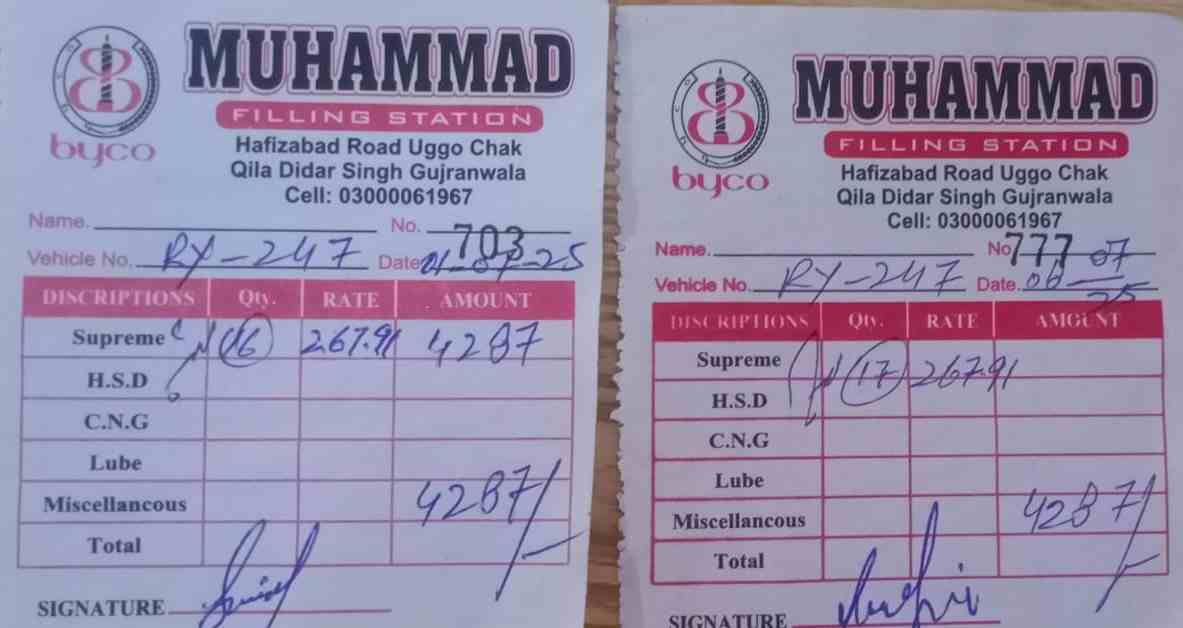 byco
MUHAMMAD
FILLING STATION
Hafizabad Road Uggo Chak
Qila Didar Singh Gujranwala
Cell: 03000061967
Name. No. 703
Vehicle No. RY-247 Date 01-07-25
DISCRIPTIONS Qty. RATE AMOUNT
Supreme 16 267.91 4287
H.S.D
C.N.G
Lube
Miscellancous 4287/-
Total
SIGNATURE
byco
MUHAMMAD
FILLING STATION
Hafizabad Road Uggo Chak
Qila Didar Singh Gujranwala
Cell: 03000061967
Name. No 777
Vehicle No. RY-247 Date. 06-07-25
DISCRIPTIONS Qty. RATE AMOUNT
Supreme 17 267.91
H.S.D
C.N.G
Lube
Miscellancous 4287/-
Total
SIGNATURE